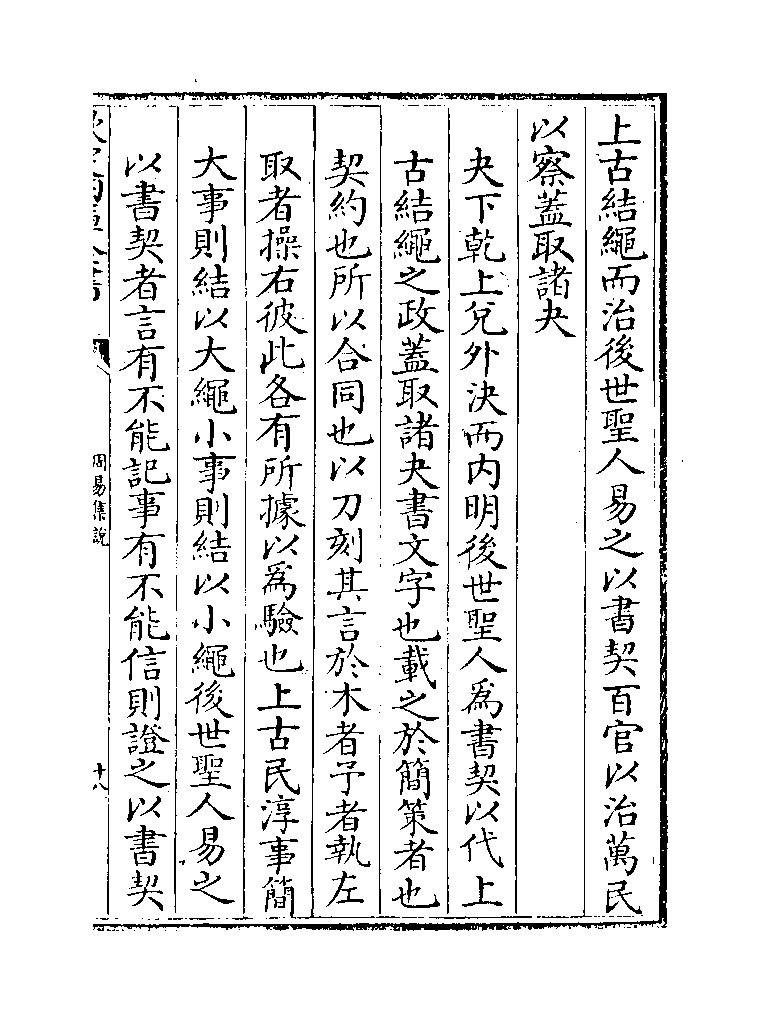 上古結繩而治後世聖人易之以書契百官以治萬民
以察蓋取諸夬
夬下乾上兌外決而内明後世聖人為書契以代上
古結繩之政蓋取諸夬書文字也載之於簡策者也
契約也所以合同也以刀刻其言於木者予者執左
取者操右彼此各有所據以為驗也上古民淳事簡
大事則結以大繩小事則結以小繩後世聖人易之
以書契者言有不能記事有不能信則證之以書契
周易集說
十八